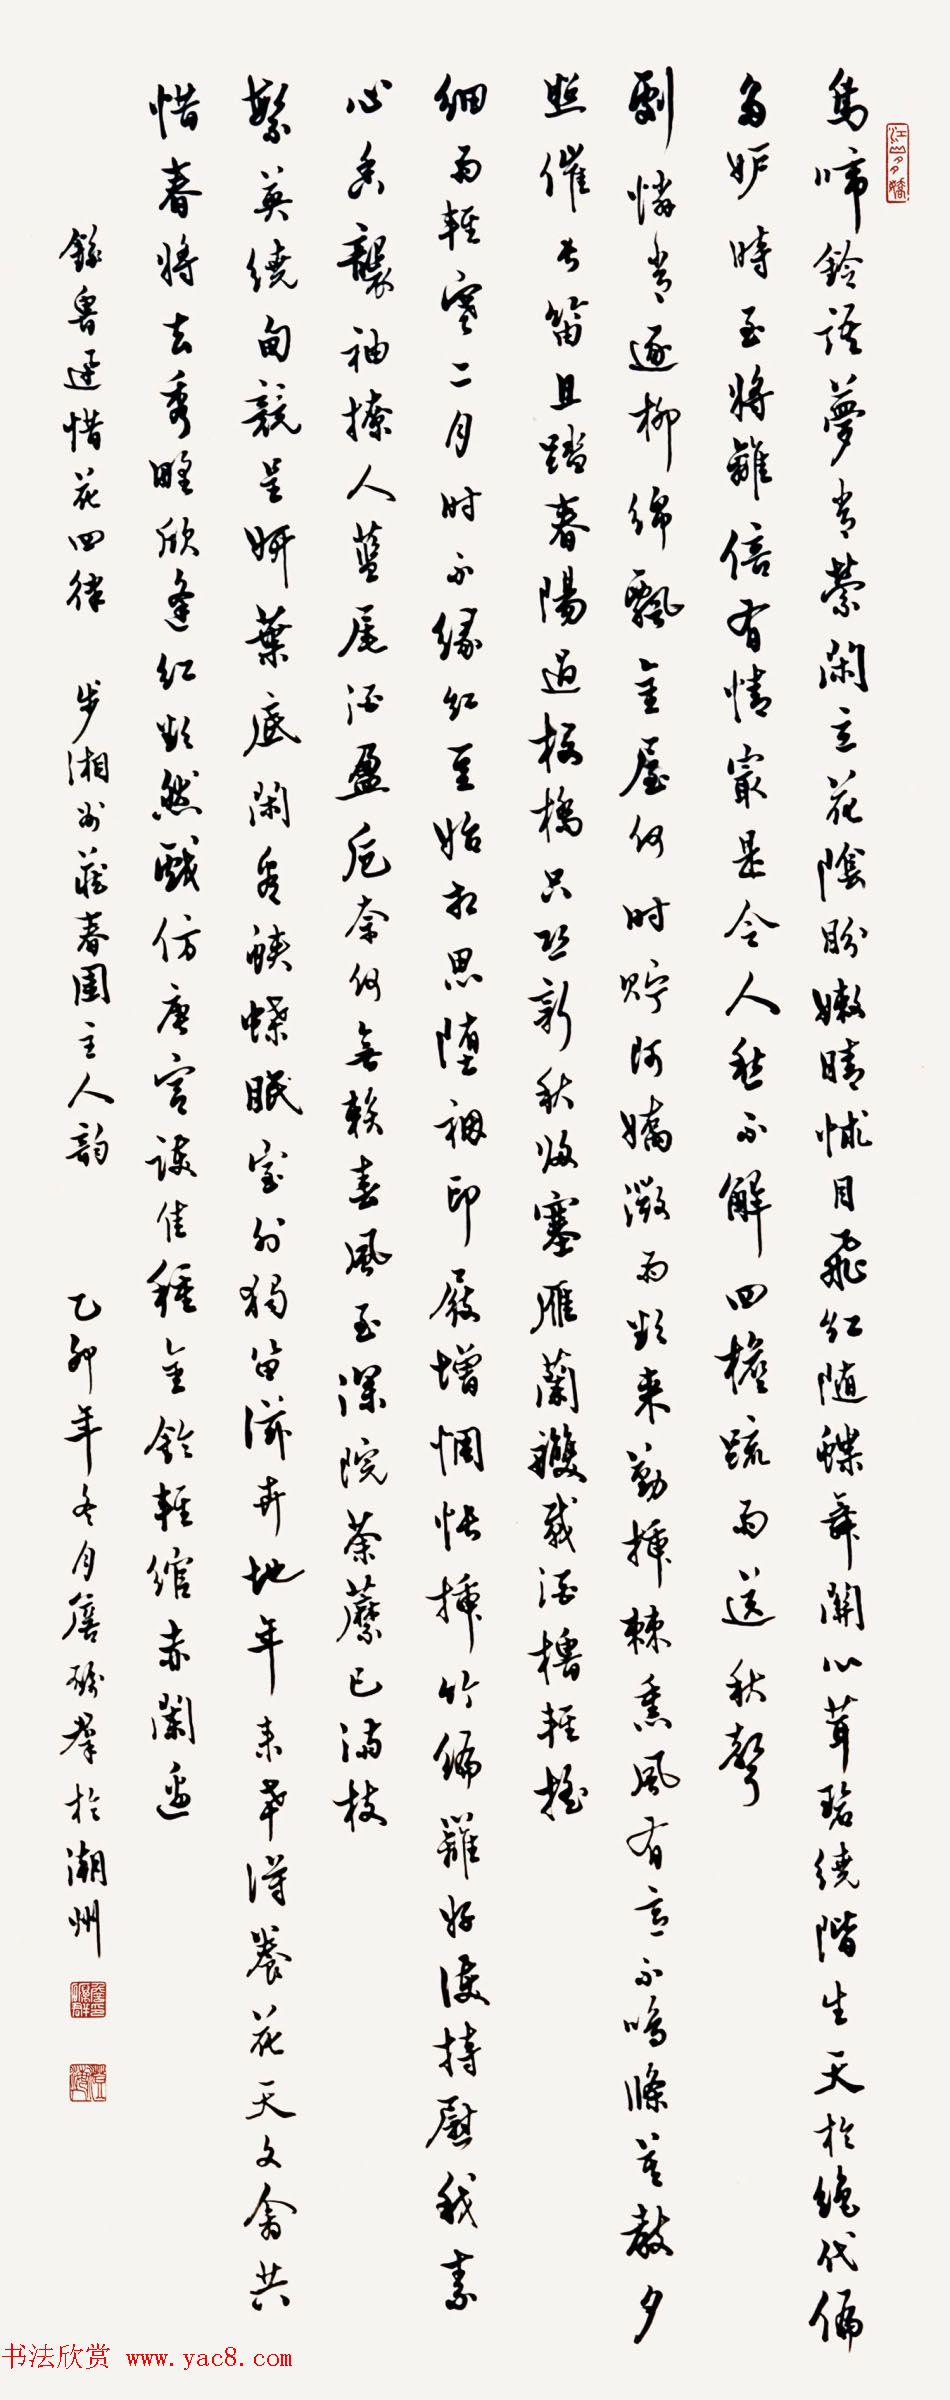 江山多嬌
鳥啼鈴語夢常縈閑立花陰盼嫩晴怵目飛紅随蝶舞開心茸碧繞階生天於絕代偏
多妒時至將離倍有情最是令人愁不解四檐疏雨送秋聲
劇憐常逐柳綿飄金屋何时貯阿嬌微雨欺來勤插棘熏風有意不鳴條莫教夕
照催長笛且踏春陽過板橋只恐新秋歸塞雁蘭艭載酒櫓輕搖
細雨輕寒二月时不緣紅豆始相思墮裀印屐增惆悵插竹編籬好護持慰我素
心香襲袖撩人藍尾酒盈卮奈何無賴春風至深院荼蘼已满枝
繁英繞甸競呈妍葉底閑看蛺蝶眠室外獨留滋卉地年來幸得養花天文禽共
惜春將去秀野欣逢紅欲然戲仿唐宮護佳種金鈴輕綰赤闌邊
錄魯迅惜花四律 步湘州藏春園主人韵 乙卯年冬月詹群於潮州
书法欣赏 www.yac8.com